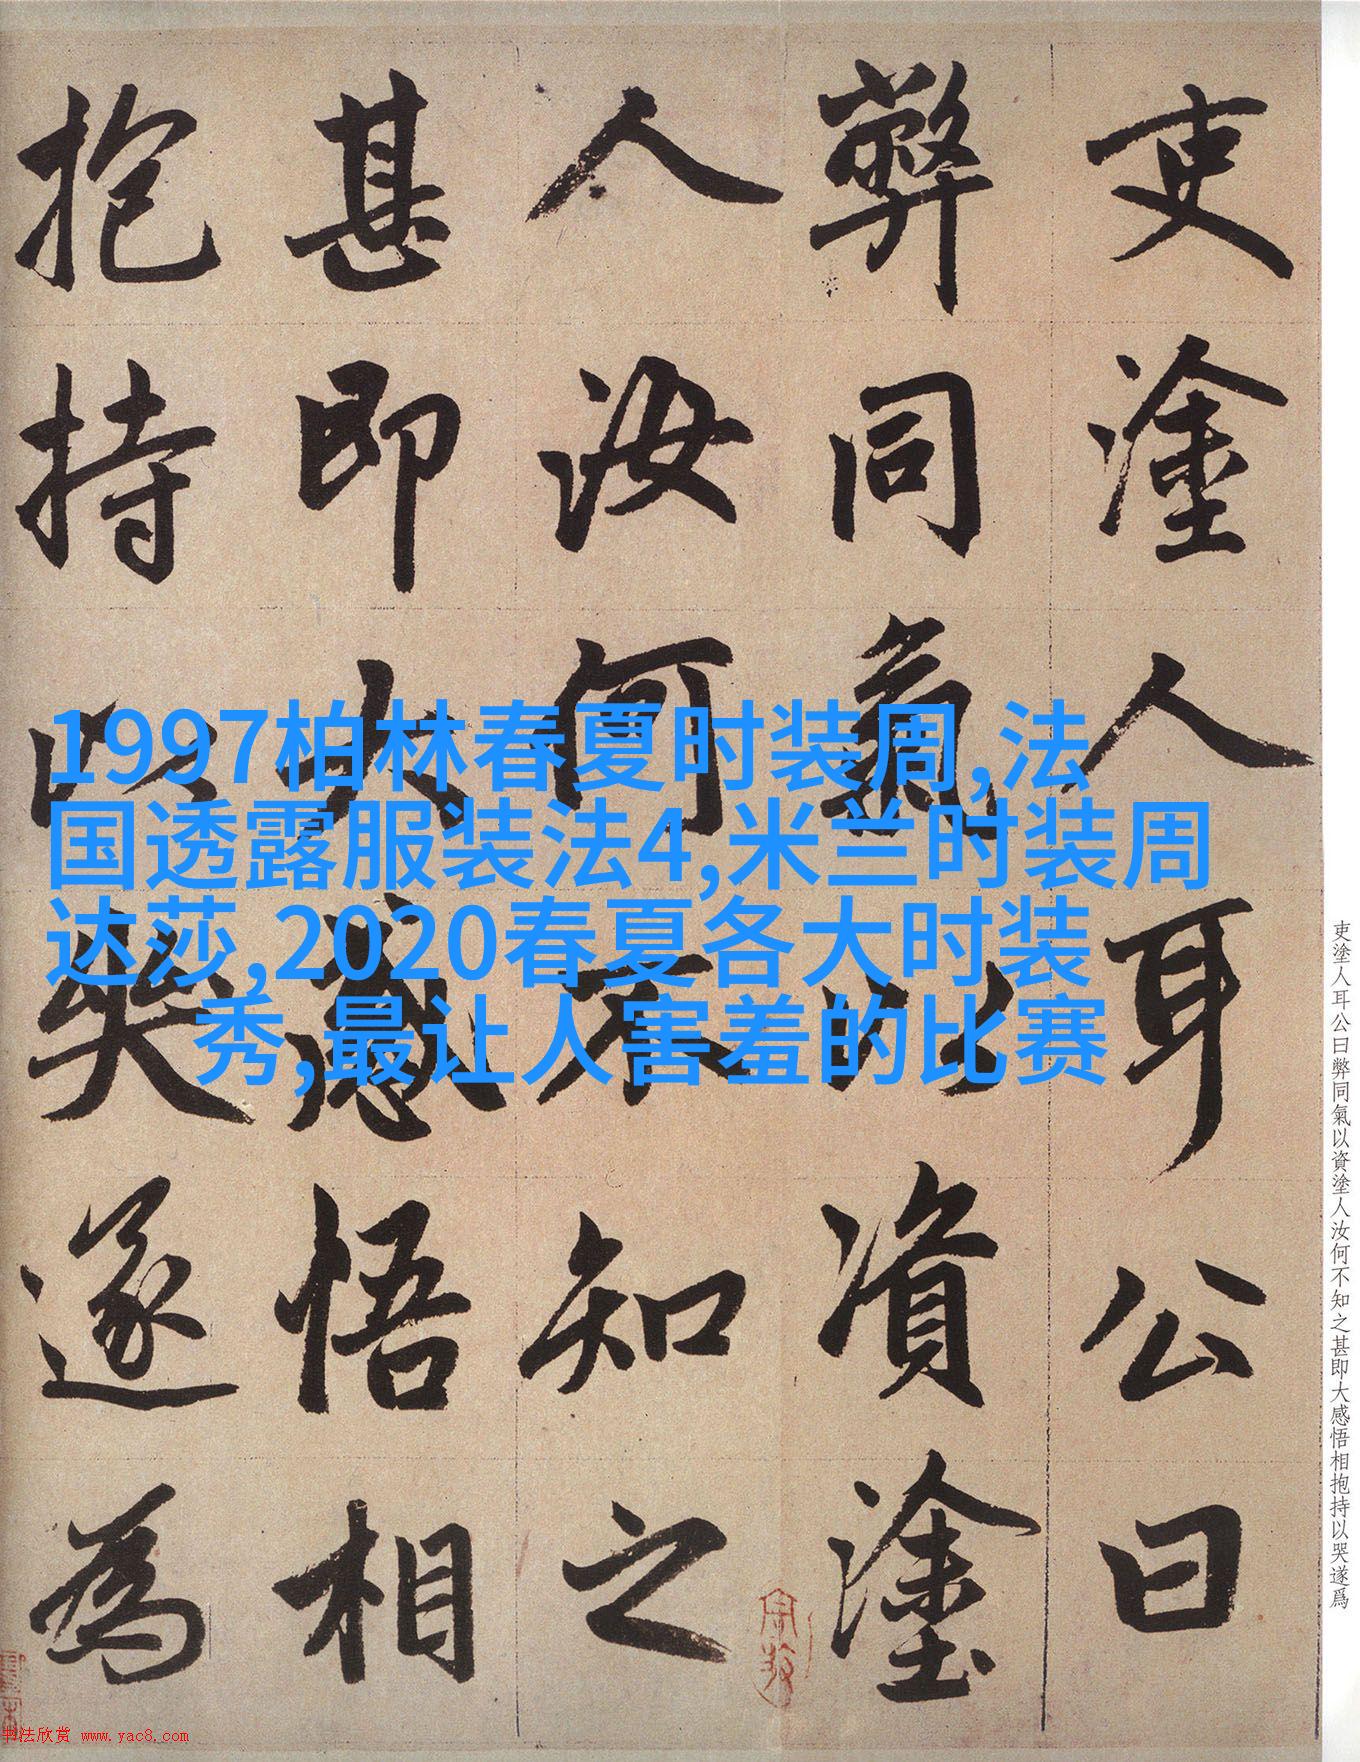 1997柏林春夏时装周,法
国透露服装法4,米兰时装周
达莎,2020春夏各大时装
秀,最让人害羞的比赛
吏塗人耳公曰
弊同氣以資塗
人汝何不知之
甚即大感悟相
抱持以哭遂為
吏塗人耳公曰弊同氣以資塗人汝何不知之甚即大感悟相抱持以哭遂爲
书法欣赏 www.yac8.com